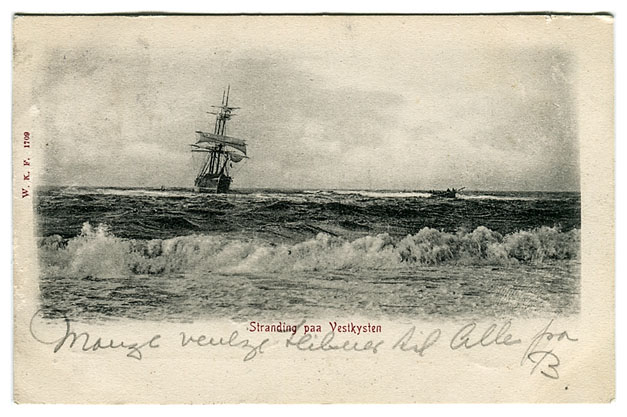 W. K. F. 1709
Stranding paa Vestkysten
Mange venlige Hilsner til Alle fra
B